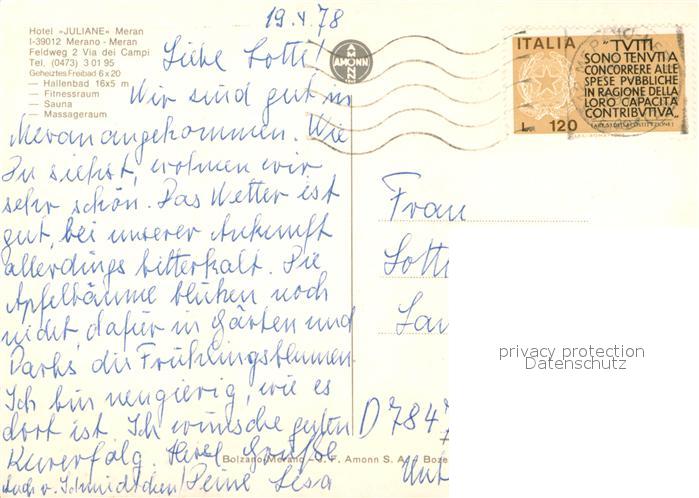 Hotel »JULIANE« Meran
I-39012 Merano - Meran
Feldweg 2 Via dei Campi
Tel. (0473) 3 01 95
Geheiztes Freibad 6 x 20
— Hallenbad 16x5 m
— Fitnessraum
— Sauna
— Massageraum
19.4.78
Liebe Lotte!
Wir sind gut in
Meran angekommen. Wie
Du siehst, wohnen wir
sehr schön. Das Wetter ist
gut, bei unserer Ankunft
allerdings bitterkalt. Die
Apfelbäume blühen noch
nicht, dafür in Gärten und
Parks die Frühlingsblumen.
Ich bin neugierig, wie es
dort ist. Ich wünsche guten
Kurerfolg. Herzl. Grüße
Auch v. Schmidtchen! Deine Lisa
AMONN
ITALIA
"TUTTI
SONO TENUTI A
CONCORRERE ALLE
SPESE PUBBLICHE
IN RAGIONE DELLA
LORO CAPACITÀ
CONTRIBUTIVA"
(ART. 53 DELLA COSTITUZIONE)
L. 120
Frau
Lotte
D 784
Bolzano Merano - J. F. Amonn S. A.
privacy protection
Datenschutz